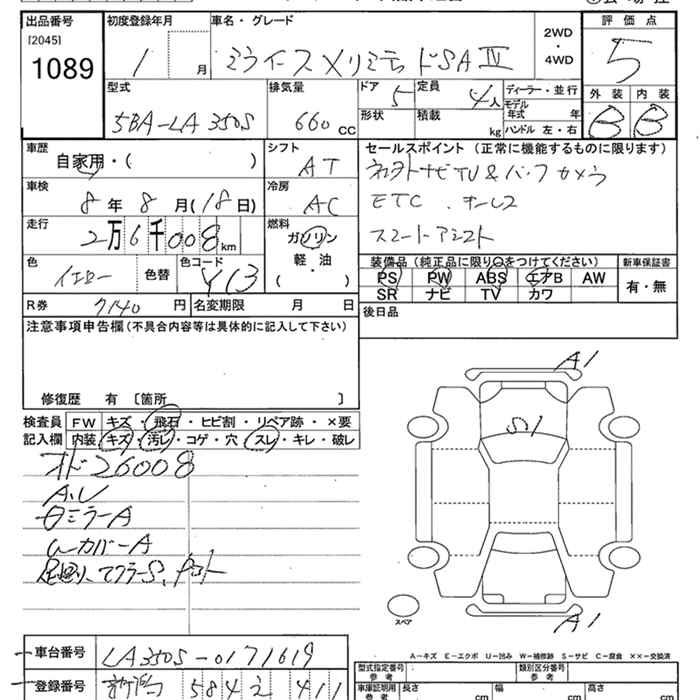 出品番号 初度登録年月 車名・グレード 2WD・4WD 評価点
[2045]
1089 / 月 ミライース Xリミテッド SA Ⅳ 5
型式 排気量 ドア 5 定員 4人 ディーラー・並行 外装 内装
5BA-LA350S 660 CC 形状 積載 kg モデル年式 年 B B
ハンドル 左・右
車歴 シフト セールスポイント (正常に機能するものに限ります)
自家用・( ) AT ナビTV&バックカメラ
車検 冷房 ETC キーレス
8年 8月(18日) AC スマートアシスト
走行 燃料
2万6千008km ガソリン
軽・油
( )
装備品(純正品に限り○をつけてください) 新車保証書
色 イエロー 色替 色コード Y13
PS PW ABS エアB AW 有・無
SR ナビ TV カワ
R券 7140円 名変期限 月 日
後日品
注意事項申告欄(不具合内容等は具体的に記入して下さい)
修復歴 有 〔箇所 〕
検査員 FW キズ・飛石・ヒビ割・リペア跡・×要
記入欄 内装 キズ・汚レ・コゲ・穴・スレ・キレ・破レ
オド26008
A.U
ミラーA
カバーA
足廻り、マフラーS、
A1
S1
A1
スペア
A-キズ E-エクボ U-凹み W-補修跡 S-サビ C-腐食 ××-交換済
車台番号 LA350S-0171619
型式指定番号 参考 類別区分番号 参考
登録番号 584 411
車庫証明用 参考 長さ cm 幅 cm 高さ cm